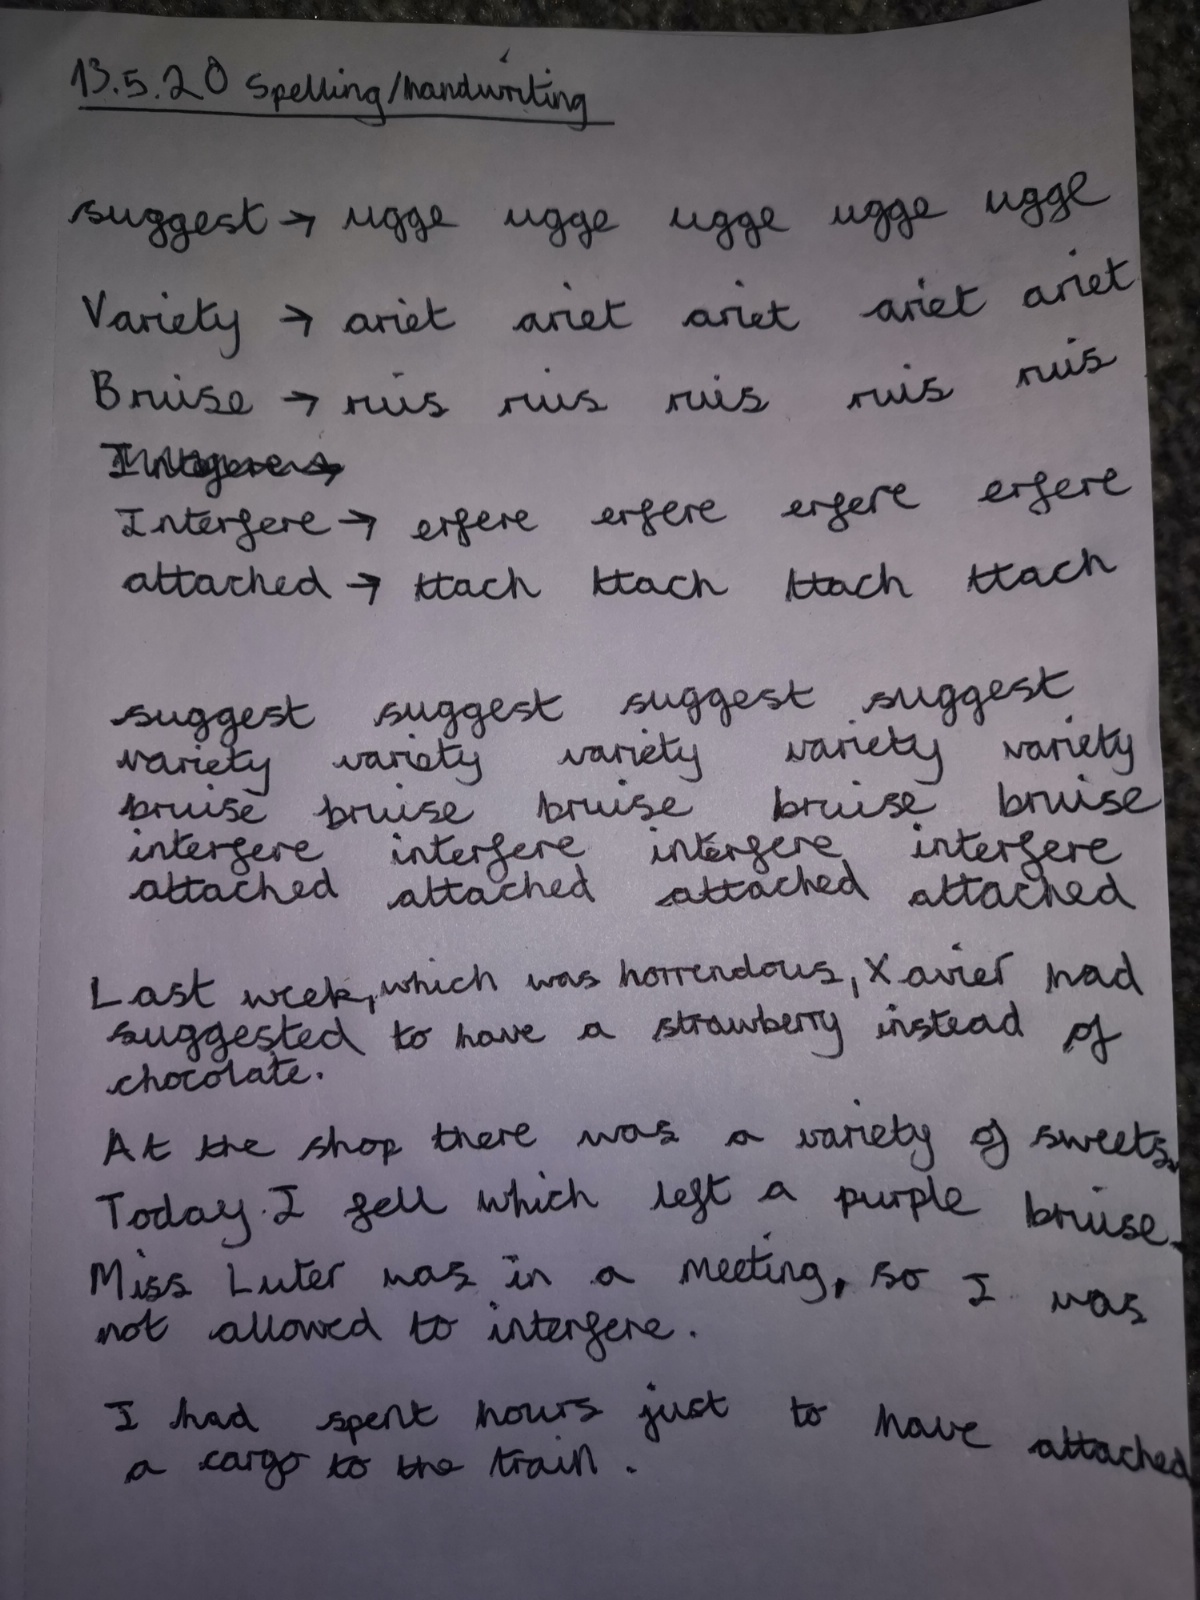 13.5.20 Spelling/handwriting
suggest → ugge ugge ugge ugge ugge
Variety → ariet ariet ariet ariet ariet
Bruise → ruis ruis ruis ruis ruis
Interfere → erfere erfere erfere erfere
attached → ttach ttach ttach ttach
suggest suggest suggest suggest
variety variety variety variety variety
bruise bruise bruise bruise bruise
interfere interfere interfere interfere
attached attached attached attached
Last week, which was horrendous, Xavier had
suggested to have a strawberry instead of
chocolate.
At the shop there was a variety of sweets.
Today I fell which left a purple bruise.
Miss Luter was in a meeting, so I was
not allowed to interfere.
I had spent hours just to have attached
a cargo to the train.